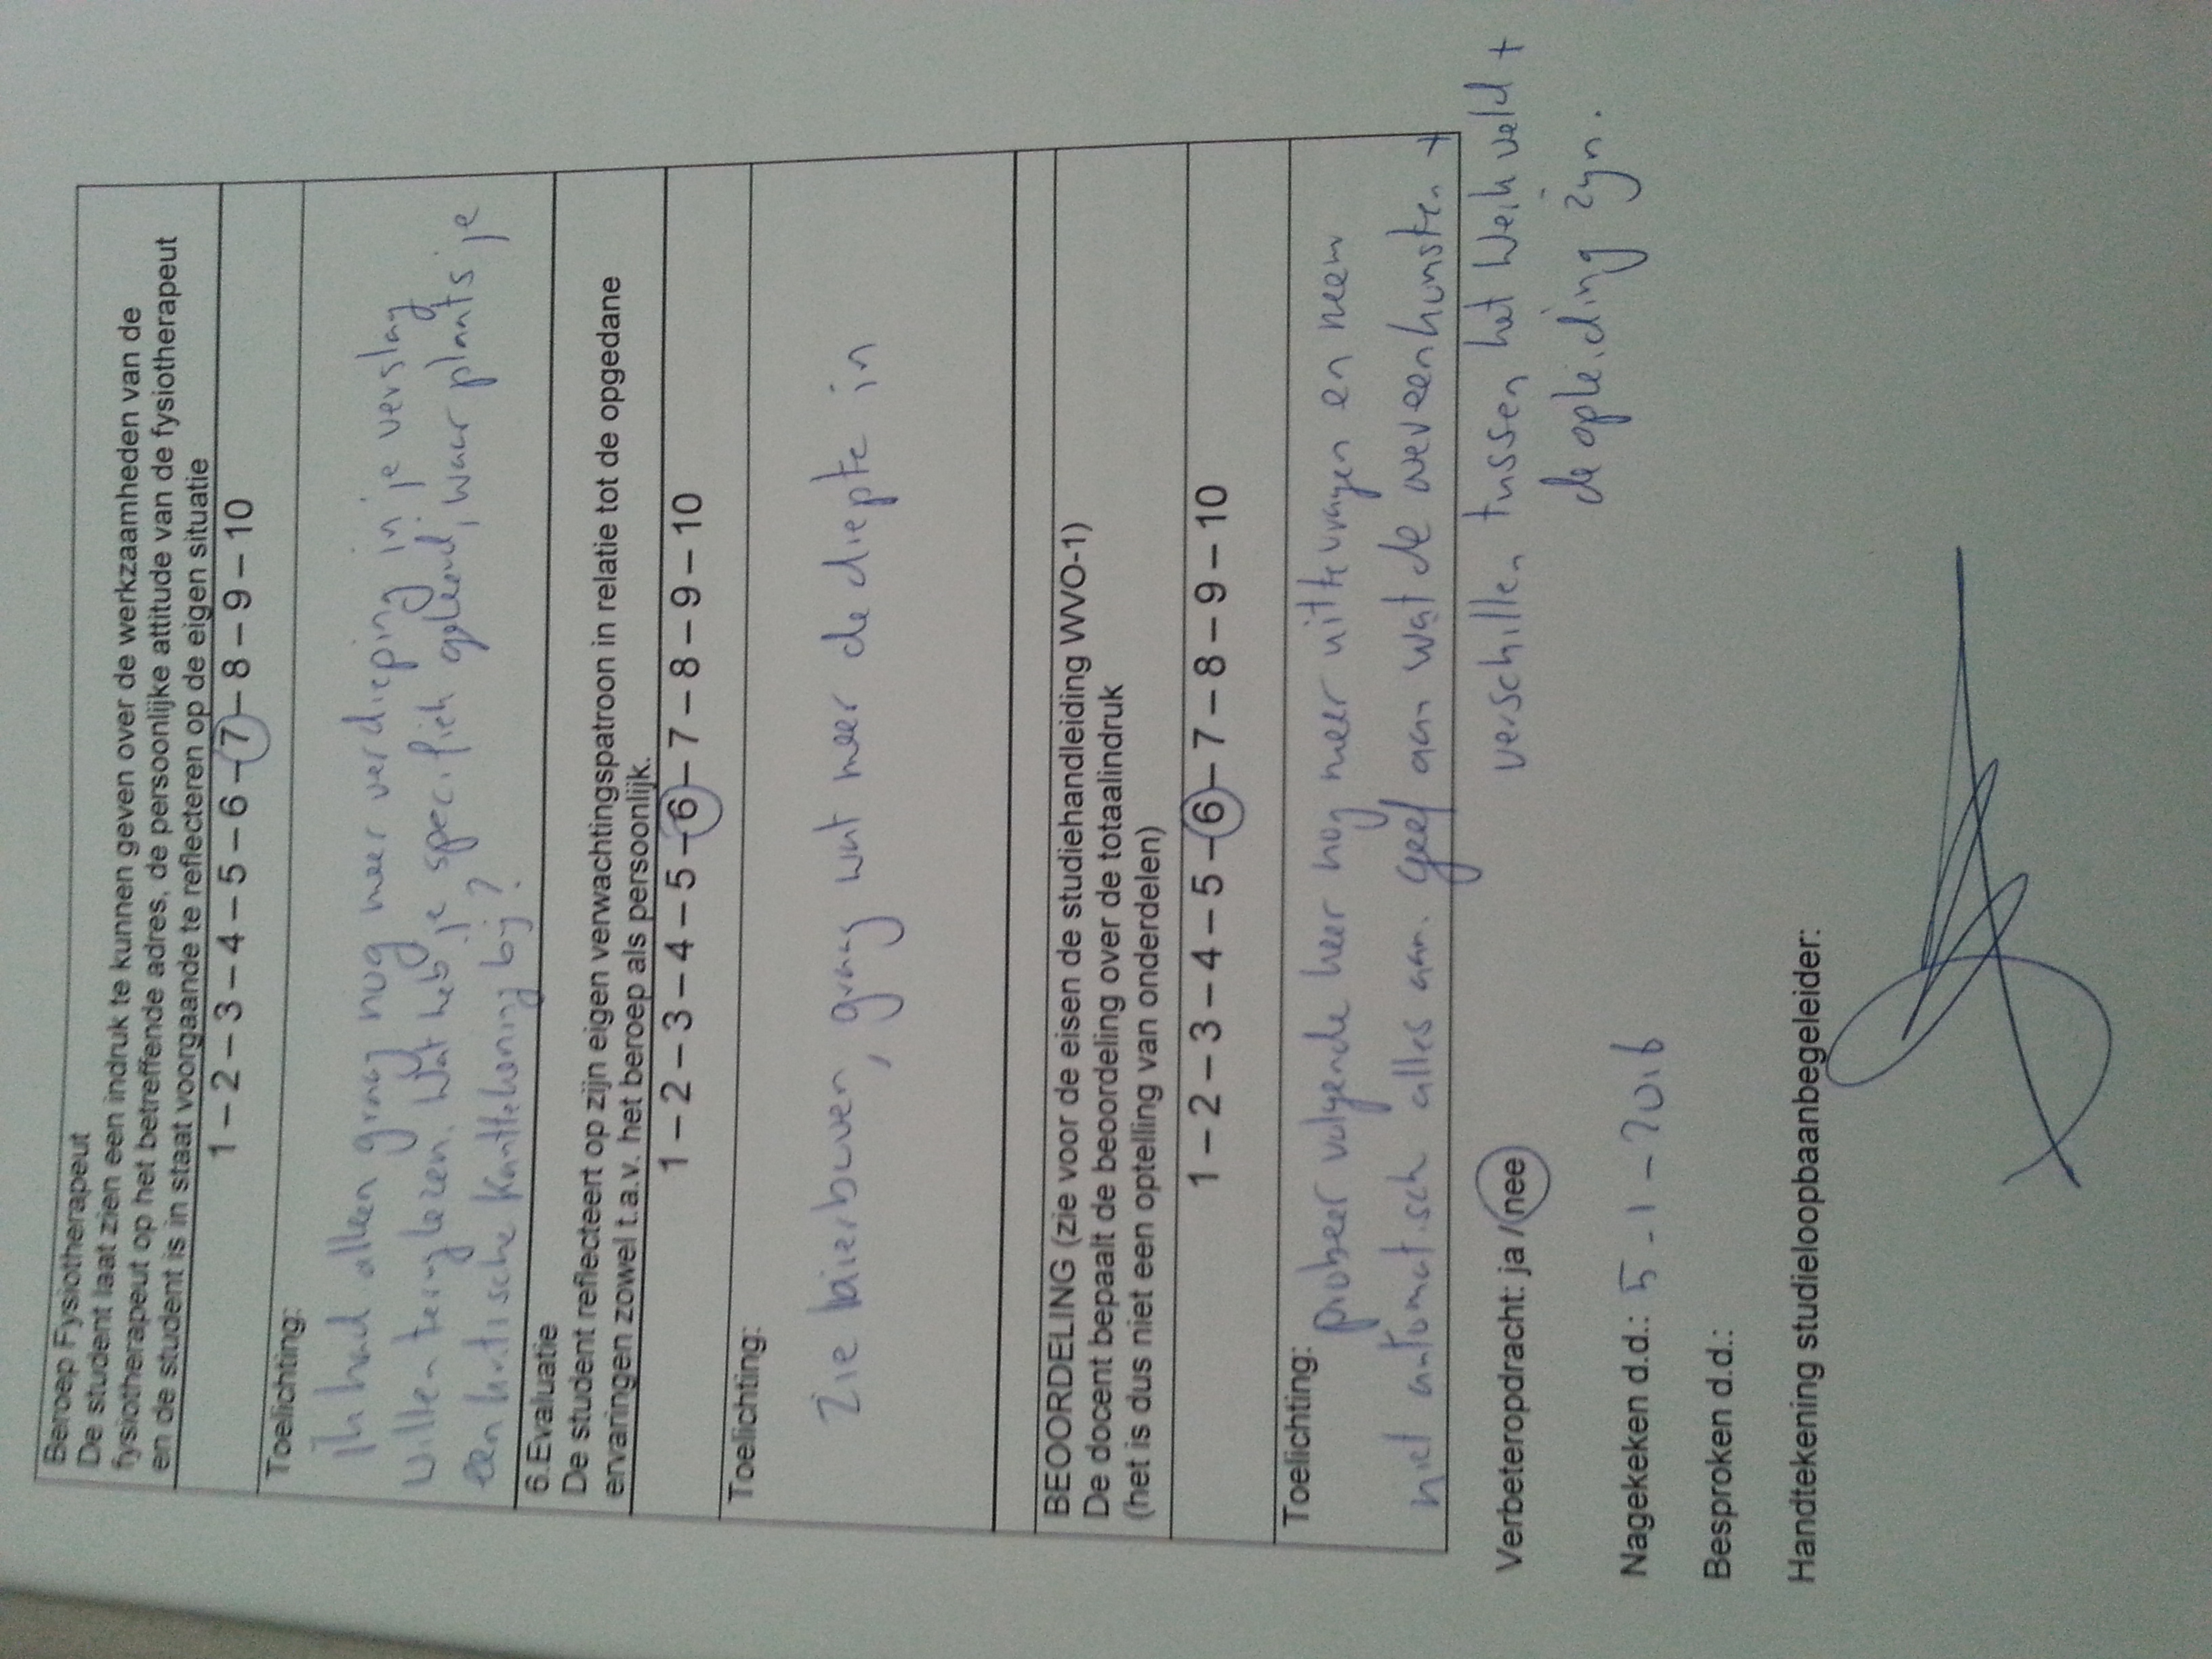 Beroep Fysiotherapeut
De student laat zien een indruk te kunnen geven over de werkzaamheden van de
fysiotherapeut op het betreffende adres, de persoonlijke attitude van de fysiotherapeut
en de student is in staat voorgaande te reflecteren op de eigen situatie
1 – 2 – 3 – 4 – 5 – 6 – 7 – 8 – 9 – 10
Toelichting:
ik had alleen graag nog meer verdieping in je verslag
willen teruglezen. Wat heb je specifiek geleerd, waar plaats je
een kritische kanttekening bij?
6.Evaluatie
De student reflecteert op zijn eigen verwachtingspatroon in relatie tot de opgedane
ervaringen zowel t.a.v. het beroep als persoonlijk.
1 – 2 – 3 – 4 – 5 – 6 – 7 – 8 – 9 – 10
Toelichting:
Zie hierboven, graag wat meer de diepte in
BEOORDELING (zie voor de eisen de studiehandleiding WVO-1)
De docent bepaalt de beoordeling over de totaalindruk
(het is dus niet een optelling van onderdelen)
1 – 2 – 3 – 4 – 5 – 6 – 7 – 8 – 9 – 10
Toelichting:
probeer volgende keer nog meer uit te vragen en neem
niet automatisch alles aan. Geef aan wat de overeenkomsten +
verschillen tussen het werkveld +
de opleiding zijn.
Verbeteropdracht: ja / nee
Nagekeken d.d.: 5 - 1 - 2016
Besproken d.d.:
Handtekening studieloopbaanbegeleider: